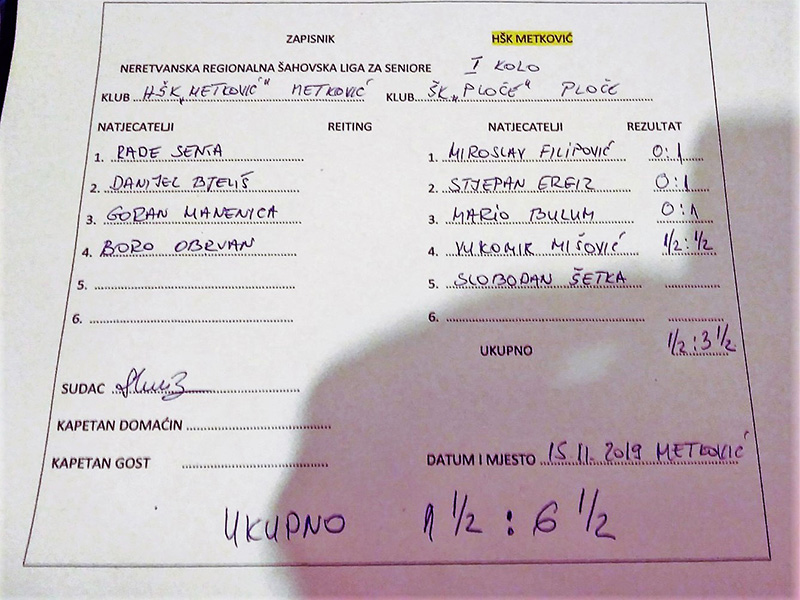 ZAPISNIK HŠK METKOVIĆ
NERETVANSKA REGIONALNA ŠAHOVSKA LIGA ZA SENIORE I KOLO
KLUB HŠK „METKOVIĆ" METKOVIĆ KLUB ŠK „PLOČE" PLOČE
NATJECATELJI REITING NATJECATELJI REZULTAT
1. RADE SENTA 1. MIROSLAV FILIPOVIĆ 0:1
2. DANIJEL BJELIŠ 2. STJEPAN ERGIZ 0:1
3. GORAN MANENICA 3. MARIO BULUM 0:1
4. BORO OBRVAN 4. VUKOMIR MIŠOVIĆ 1/2:1/2
5. 5. SLOBODAN ŠETKA
6. 6.
UKUPNO 1/2:3 1/2
SUDAC
KAPETAN DOMAĆIN
KAPETAN GOST DATUM I MJESTO 15.11.2019 METKOVIĆ
UKUPNO 1 1/2 : 6 1/2